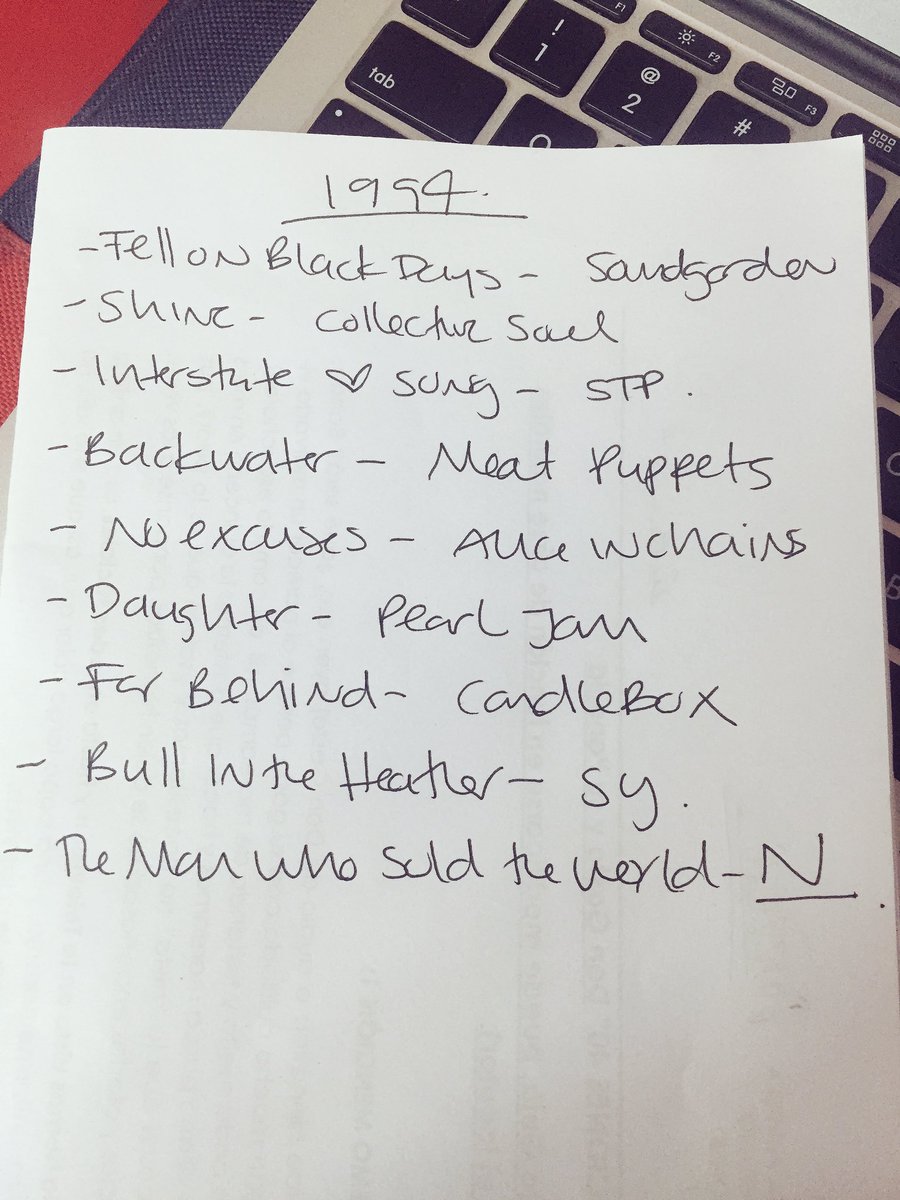 !
1
F1
@
2
F2
#
F3
tab
1994.
- Fell on Black Days - Soundgarden
- Shine - Collective Soul
- Interstate ♡ Song - STP.
- Backwater - Meat Puppets
- No excuses - Alice in chains
- Daughter - Pearl Jam
- Far Behind - CandleBox
- Bull In the Heather - SY.
- The Man who Sold the world - N.